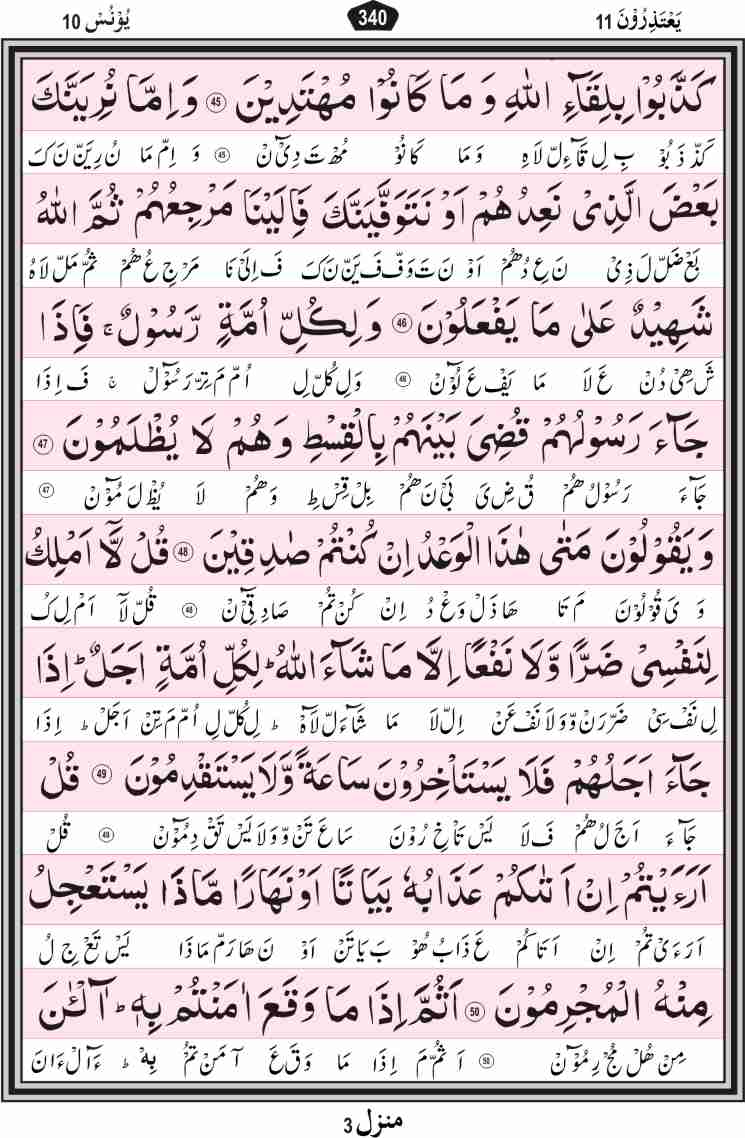 یَعْتَذِرُوْنَ 11 340 یُوْنُسْ 10
كَذَّبُوْا بِلِقَآءِ اللّٰهِ وَ مَا كَانُوْا مُهْتَدِیْنَ ۝45 وَ اِمَّا نُرِیَنَّكَ
كَذْ ذَ بُوْ بِ لِ قَآءِ لْ لَاهِ وَ مَا كَا نُوْ مُهْ تَ دِیْٓنْ ۝45 وَ اِمْ مَا نُ رِیَنْ نَ كَ
بَعْضَ الَّذِیْ نَعِدُهُمْ اَوْ نَتَوَفَّیَنَّكَ فَاِلَیْنَا مَرْجِعُهُمْ ثُمَّ اللّٰهُ
بَعْ ضَلْ لَ ذِیْ نَ عِ دُ هُمْ اَوْ نَ تَ وَفْ فَ یَنْ نَ كَ فَ اِلَیْ نَا مَرْ جِ عُ هُمْ ثُمْ مَلْ لَاهُ
شَهِیْدٌ عَلٰی مَا یَفْعَلُوْنَ ۝46 وَ لِكُلِّ اُمَّةٍ رَّسُوْلٌ ۚ فَاِذَا
شَ هِیْ دُنْ عَ لَا مَا یَفْ عَ لُوْٓنْ ۝46 وَ لِ كُلْ لِ اُمْ مَ تِرْ رَ سُوْٓلْ ۚ فَ اِذَا
جَآءَ رَسُوْلُهُمْ قُضِیَ بَیْنَهُمْ بِالْقِسْطِ وَ هُمْ لَا یُظْلَمُوْنَ ۝47
جَآءَ رَسُوْلُ هُمْ قُ ضِ یَ بَیْ نَ هُمْ بِلْ قِسْ طِ وَ هُمْ لَا یُظْ لَ مُوْٓنْ ۝47
وَ یَقُوْلُوْنَ مَتٰی هٰذَا الْوَعْدُ اِنْ كُنْتُمْ صٰدِقِیْنَ ۝48 قُلْ لَّاۤ اَمْلِكُ
وَ یَ قُوْ لُوْنَ مَ تَا هَا ذَلْ وَعْ دُ اِنْ كُنْ تُمْ صَا دِ قِیْٓنْ ۝48 قُلْ لَآ اَمْ لِ كُ
لِنَفْسِیْ ضَرًّا وَّ لَا نَفْعًا اِلَّا مَا شَآءَ اللّٰهُ ؕ لِكُلِّ اُمَّةٍ اَجَلٌ ؕ اِذَا
لِ نَفْ سِیْ ضَرْ رَنْ وْ وَ لَا نَفْ عَنْ اِلْ لَا مَا شَآءَ لْ لَاهْ ؕ لِ كُلْ لِ اُمْ مَ تِنْ اَ جَلْ ؕ اِذَا
جَآءَ اَجَلُهُمْ فَلَا یَسْتَاْخِرُوْنَ سَاعَةً وَّ لَا یَسْتَقْدِمُوْنَ ۝49 قُلْ
جَآءَ اَ جَ لُ هُمْ فَ لَا یَسْ تَاْ خِ رُوْنَ سَا عَ تَنْ وْ وَ لَا یَسْ تَقْ دِ مُوْٓنْ ۝49 قُلْ
اَرَءَیْتُمْ اِنْ اَتٰىكُمْ عَذَابُهٗ بَیَاتًا اَوْ نَهَارًا مَّا ذَا یَسْتَعْجِلُ
اَ رَ ءَیْ تُمْ اِنْ اَ تَا كُمْ عَ ذَابُ هُوْ بَ یَا تَنْ اَوْ نَ هَا رَمْ مَا ذَا یَسْ تَعْ جِ لُ
مِنْهُ الْمُجْرِمُوْنَ ۝50 اَثُمَّ اِذَا مَا وَقَعَ اٰمَنْتُمْ بِهٖ ؕ آٰلْـٰٔنَ
مِنْ هُلْ مُجْ رِ مُوْٓنْ ۝50 اَ ثُمْ مَ اِذَا مَا وَ قَ عَ آ مَنْ تُمْ بِهْ ؕ ءَآلْ ءَانَ
منزل 3